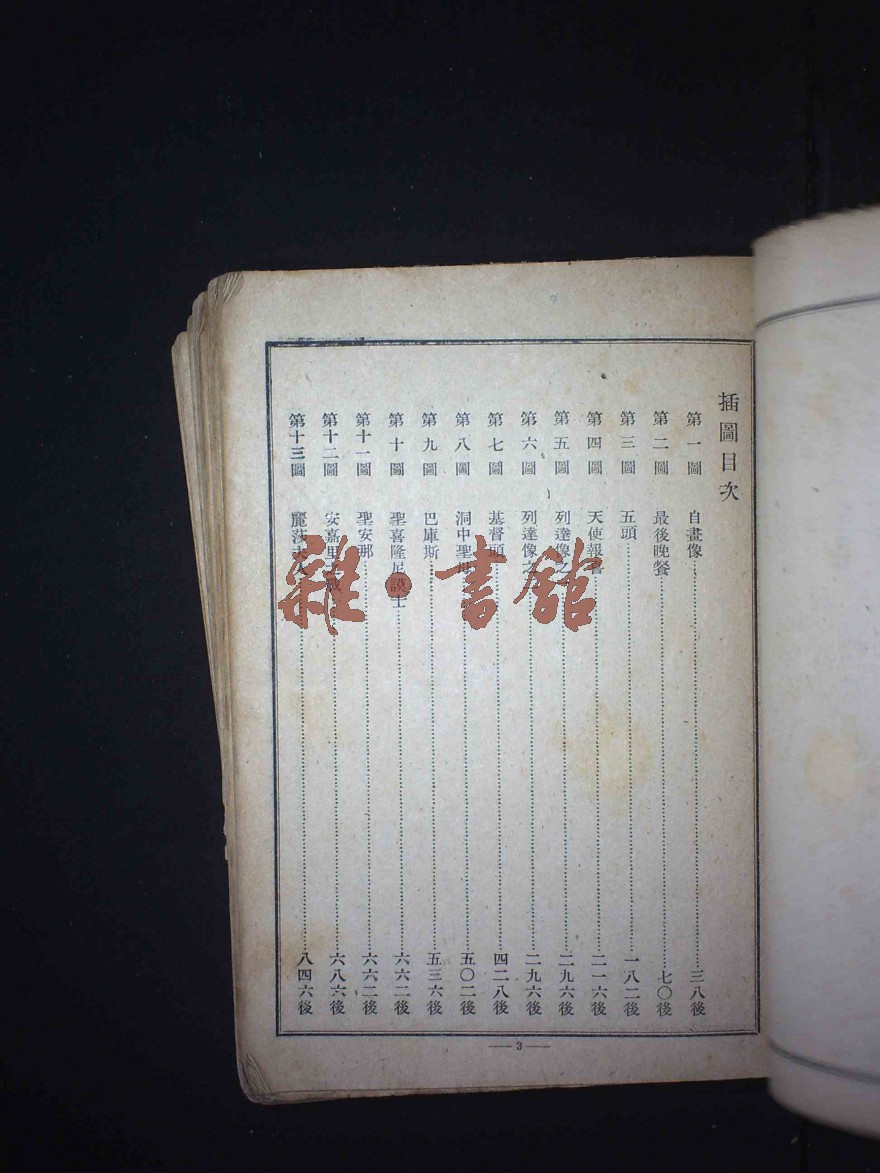 插圖目次
第一圖 自畫像 三八後
第二圖 最後晚餐 七〇後
第三圖 五頭 一八二後
第四圖 天使報 二一六後
第五圖 列達像之 二九六後
第六圖 列達像之 二九六後
第七圖 基督頭 四二八後
第八圖 洞中聖 五〇二後
第九圖 巴庫斯 五三六後
第十圖 聖喜隆尼謨士 六六二後
第十一圖 聖安那 六六二後
第十二圖 安嘉里 六八六後
第十三圖 麗莎夫人 八四六後
3
雜·書館